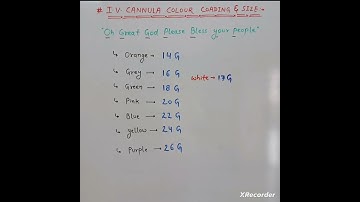 # I·V· CANNULA COLOUR COADING & SIZE -
"Oh Great God Please Bless your people"
↳ Orange → 14 G
↳ Grey → 16 G
white → 17 G
↳ Green → 18 G
↳ Pink → 20 G
↳ Blue → 22 G
↳ yellow → 24 G
↳ Purple → 26 G
XRecorder